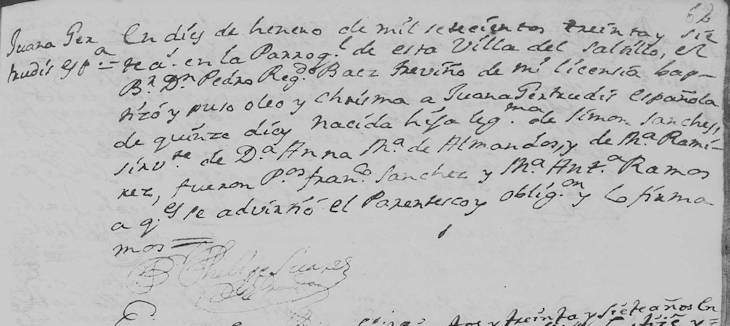 62
Juana Ger
trudis esp.ª
En diez de henero de mil setecientos treinta y sie
te a.s en la Parrog.l de esta Villa del Saltillo, el
B.r D.n Pedro Reg.do Baez treviño de mi licensia bap-
tizó y puso oleo y chrisma a Juana Gertrudis española
de quinze dias nacida hija leg.ma de Simon Sanches,
sirv.te de D.ª Anna M.ª de Almandos, y de M.ª Rami-
rez, fueron P.os fran.co Sanchez y M.ª Ant.ª Ramos
a q.es se advirtió el Parentesco y oblig.on y lo firma
mos
B.r Suarez
tos y treinta y siete años En